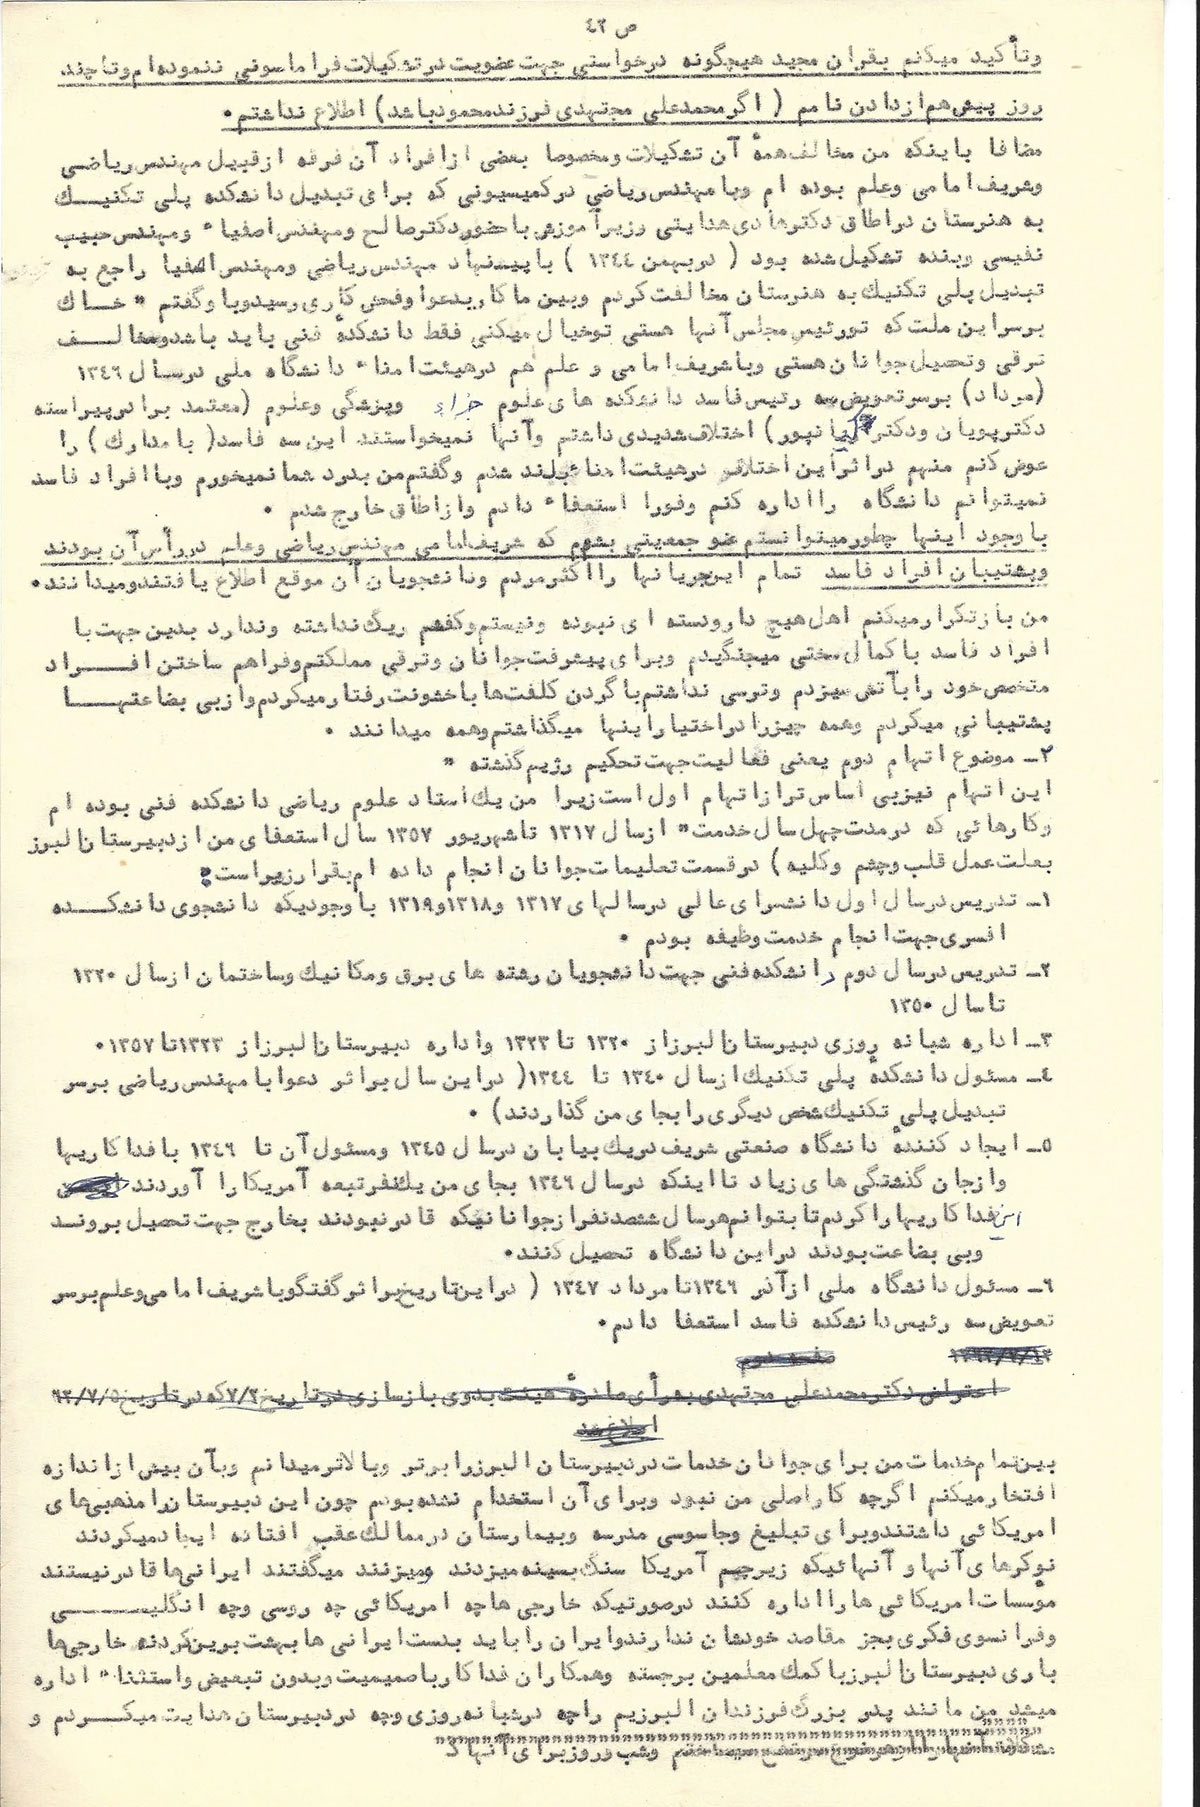 ص ٤٢
وتأکید میکنم بقرآن مجید هیچگونه درخواستی جهت عضویت درتشکیلات فراماسونی ننموده‌ام وتاچند
روز پیش هم ازدادن نامم ( اگر محمدعلی مجتهدی فرزند محمود باشد) اطلاع نداشتم٠
مضافا باینکه من مخالف همهٔ آن تشکیلات ومخصوصا بعضی ازافراد آن فرقه ازقبیل مهندس ریاضی
وشریف امامی وعلم بوده ام وبا مهندس ریاضی درکمیسیونی که برای تبدیل دانشکده پلی تکنیک
به هنرستان دراطاق دکترهادی هدایتی وزیرآموزش باحضور دکترصالح ومهندس اصفیاء ومهندس حبیب
نفیسی وبنده تشکیل شده بود ( دربهمن ١٣٤٤ ) باپیشنهاد مهندس ریاضی ومهندس اصفیا راجع به
تبدیل پلی تکنیک به هنرستان مخالفت کردم وبین ما کار بدعوا وفحش کاری رسید وبا وگفتم " خاک
برسراین ملت که تو رئیس مجلس آنها هستی توخیال میکنی فقط دانشکدهٔ فنی باید باشد ومخالف
ترقی وتحصیل جوانان هستی وبا شریف امامی و علم هم درهیئت امناء دانشگاه ملی درسال ١٣٤٦
(مرداد) برسرتعویض سه رئیس فاسد دانشکده های علوم وپزشکی وعلوم (معتمد برادر پیراسته
دکترپویان ودکتر کیانپور) اختلاف شدیدی داشتم وآنها نمیخواستند این سه فاسد( با مدارک) را
عوض کنم منهم دراثراین اختلاف درهیئت امنا بلند شدم وگفتم من بدرد شما نمیخورم وبا افراد فاسد
نمیتوانم دانشگاه رااداره کنم وفورا استعفاء دادم وازاطاق خارج شدم ٠
باوجود اینها چطور میتوانستم عضو جمعیتی بشوم که شریف امامی مهندس ریاضی وعلم دررأس آن بودند
وپشتیبان افراد فاسد تمام این جریانها رااکثر مردم ودانشجویان آن موقع اطلاع یافتند ومیدانند٠
من باز تکرار میکنم اهل هیچ دارودسته ای نبوده ونیستم وکفشم ریگ نداشته وندارد بدین جهت با
افراد فاسد باکمال سختی میجنگیدم وبرای پیشرفت جوانان وترقی مملکتم وفراهم ساختن افراد
متخصص خود را بآتش میزدم وترسی نداشتم باگردن کلفت‌ها باخشونت رفتار میکردم وازبی بضاعتها
پشتیبانی میکردم وهمه چیز را دراختیار اینها میگذاشتم وهمه میدانند ٠
٢ــ موضوع اتهام دوم یعنی فعالیت جهت تحکیم رژیم گذشته "
این اتهام نیزبی اساس ترازاتهام اول است زیرا من یک استاد علوم ریاضی دانشکده فنی بوده ام
وکارهائی که درمدت چهل سال خدمت" ازسال ١٣١٧ تاشهریور ١٣٥٧ سال استعفای من ازدبیرستان البرز
بعلت عمل قلب وچشم وکلیه) درقسمت تعلیمات جوانان انجام داده ام بقرار زیراست:
١ــ تدریس درسال اول دانشسرای عالی درسالهای ١٣١٧ و١٣١٨و١٣١٩ باوجودیکه دانشجوی دانشکده
افسری جهت انجام خدمت وظیفه بودم ٠
٢ــ تدریس درسال دوم دانشکده فنی جهت دانشجویان رشته های برق ومکانیک وساختمان ازسال ١٣٢٠
تاسال ١٣٥٠
٣ــ اداره شبانه روزی دبیرستان البرزاز ١٣٢٠ تا ١٣٢٣ واداره دبیرستان البرزاز ١٣٢٣تا١٣٥٧٠
٤ــ مسئول دانشکدهٔ پلی تکنیک ازسال ١٣٤٠ تا ١٣٤٤( دراین سال براثر دعوا با مهندس ریاضی برسر
تبدیل پلی تکنیک شخص دیگری را بجای من گذاردند) ٠
٥ــ ایجاد کنندهٔ دانشگاه صنعتی شریف دریک بیابان درسال ١٣٤٥ ومسئول آن تا ١٣٤٦ بافداکاریها
وازجان گذشتگی های زیاد تااینکه درسال ١٣٤٦ بجای من یکنفرتبعه آمریکا را آوردند
این فداکاریها را کردم تا بتوانم هرسال ششصد نفرازجوانانیکه قادرنبودند بخارج جهت تحصیل بروند
وبی بضاعت بودند دراین دانشگاه تحصیل کنند٠
٦ــ مسئول دانشگاه ملی ازآذر ١٣٤٦تا مرداد ١٣٤٧ ( دراین تاریخ براثر گفتگو با شریف امامی وعلم برسر
تعویض سه رئیس دانشکده فاسد استعفا دادم٠
صفحه دوم
اعتراض دکترمحمدعلی مجتهدی به رأی صادرهٔ هیئت بدوی بازسازی درتاریخ ٧/٢ که درتاریخ ٦٢/٧/٥
ابلاغ شد
بین تمام خدمات من برای جوانان خدمات دردبیرستان البرز را برتر وبالاتر میدانم وبآن بیش ازاندازه
افتخار میکنم اگرچه کاراصلی من نبود وبرای آن استخدام نشده بودم چون این دبیرستان را مذهبی های
امریکائی داشتند وبرای تبلیغ وجاسوسی مدرسه وبیمارستان درممالک عقب افتاده ایجاد میکردند
نوکرهای آنها و آنهائیکه زیرچتر آمریکا سنگ بسینه میزدند ومیزنند میگفتند ایرانی ها قادرنیستند
موسسات امریکائی ها را اداره کنند درصورتیکه خارجی ها چه امریکائی چه روسی وچه انگلیسی
وفرانسوی فکری بجز مقاصد خودشان ندارند وایران را باید بدست ایرانی ها بهشت برین کرد نه خارجی ها
باری دبیرستان البرز باکمک معلمین برجسته وهمکاران فداکار باصمیمیت وبدون تبعیض واستثناء اداره
میشد من مانند پدر بزرگ فرزندان البرزیم راچه درشبانه روزی وچه دردبیرستان هدایت میکردم و
وشب وروز برای آنها